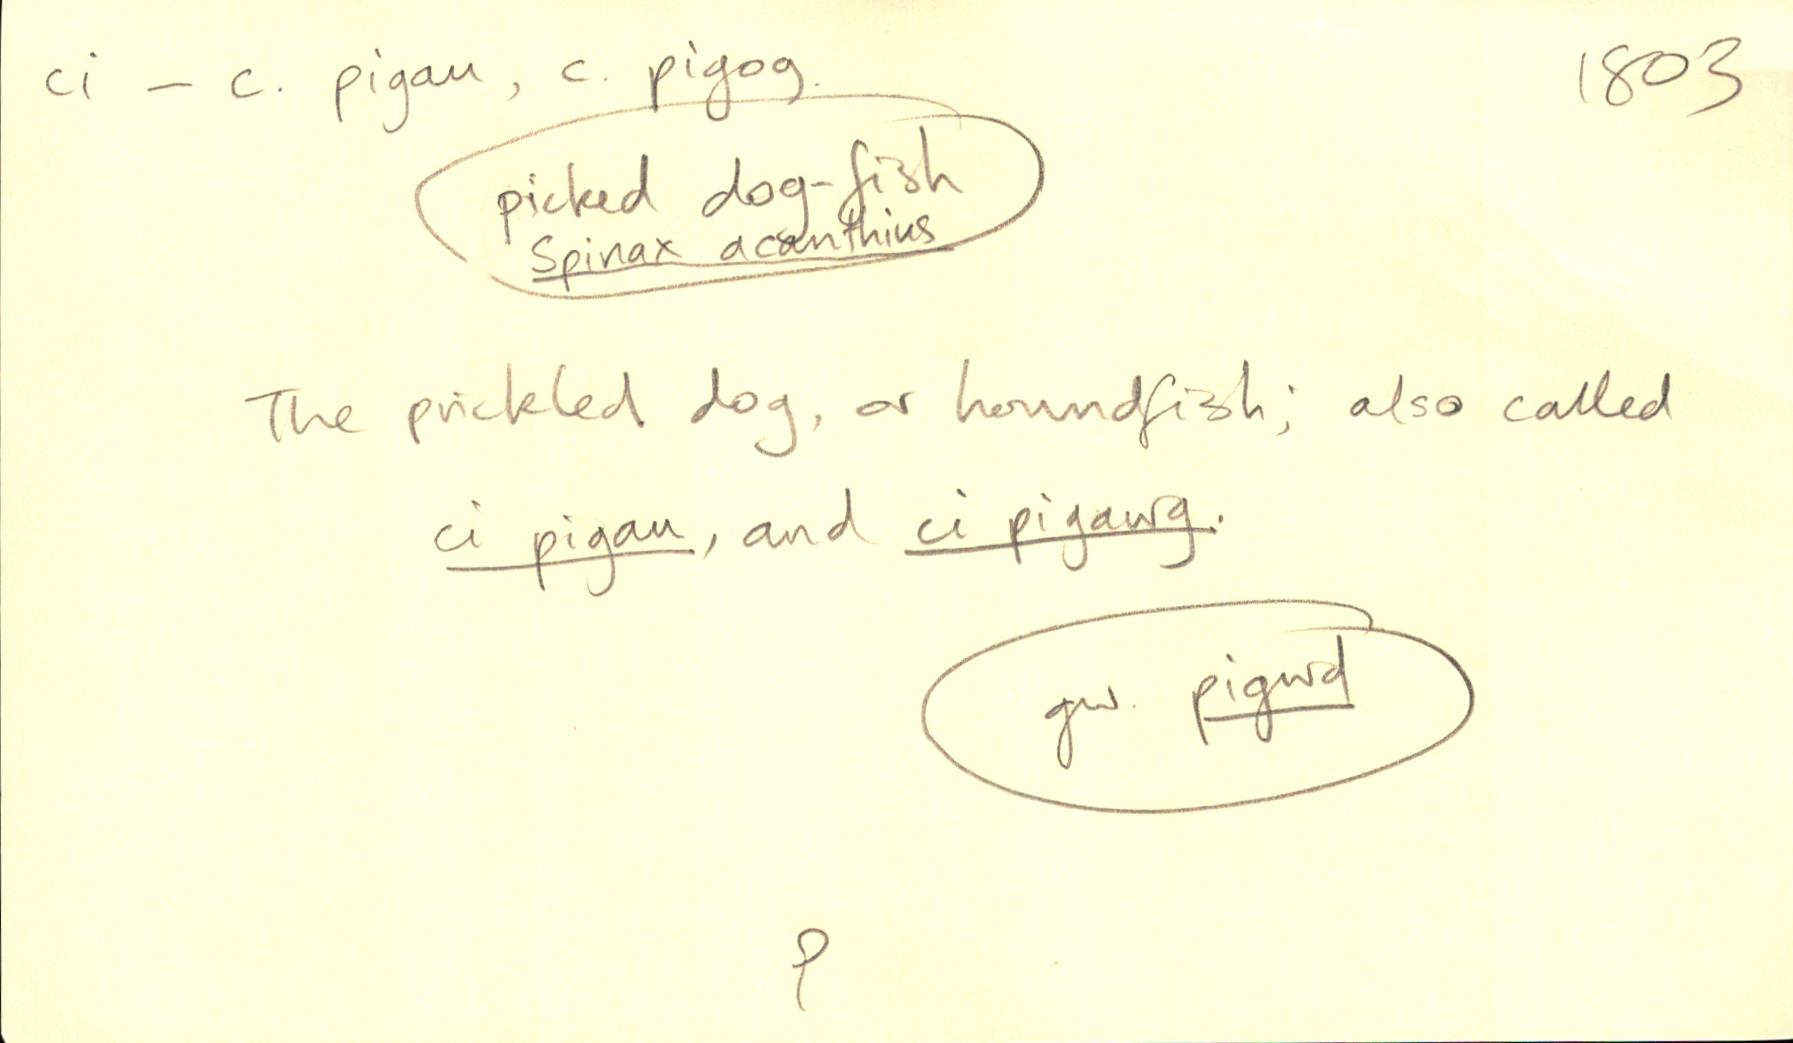 ci – c. pigau, c. pigog. 1803
picked dog-fish
Spinax acanthius
The prickled dog, or houndfish; also called
ci pigau, and ci pigawg.
gw. pigwd
P